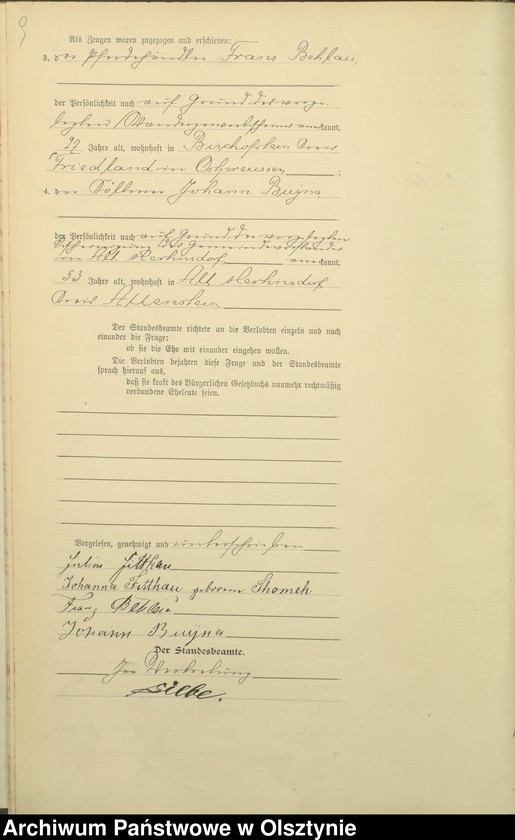 9
Als Zeugen waren zugezogen und erschienen:
3. der Pferdehändler Franz Behlau,
der Persönlichkeit nach auf Grund des vorge-
legten Wandergewerbescheins anerkannt,
27 Jahre alt, wohnhaft in Bischofstein Kreis
Friedland in Ostpreussen ;
4. der Johann Buyna
der Persönlichkeit nach auf Grund der vorgelegten
Bescheinigung des Gemeindevorstandes
in Alt anerkannt,
53 Jahre alt, wohnhaft in Alt
Kreis Allenstein
Der Standesbeamte richtete an die Verlobten einzeln und nach
einander die Frage:
ob sie die Ehe mit einander eingehen wollen.
Die Verlobten bejahten diese Frage und der Standesbeamte
sprach hierauf aus,
daß sie kraft des Bürgerlichen Gesetzbuchs nunmehr rechtmäßig
verbundene Eheleute seien.
Vorgelesen, genehmigt und unterschrieben
Fitthau
Johanna Fitthau geborene Thomek
Franz Behlau
Johann Buyna
Der Standesbeamte.
In Vertretung
Archiwum Państwowe w Olsztynie